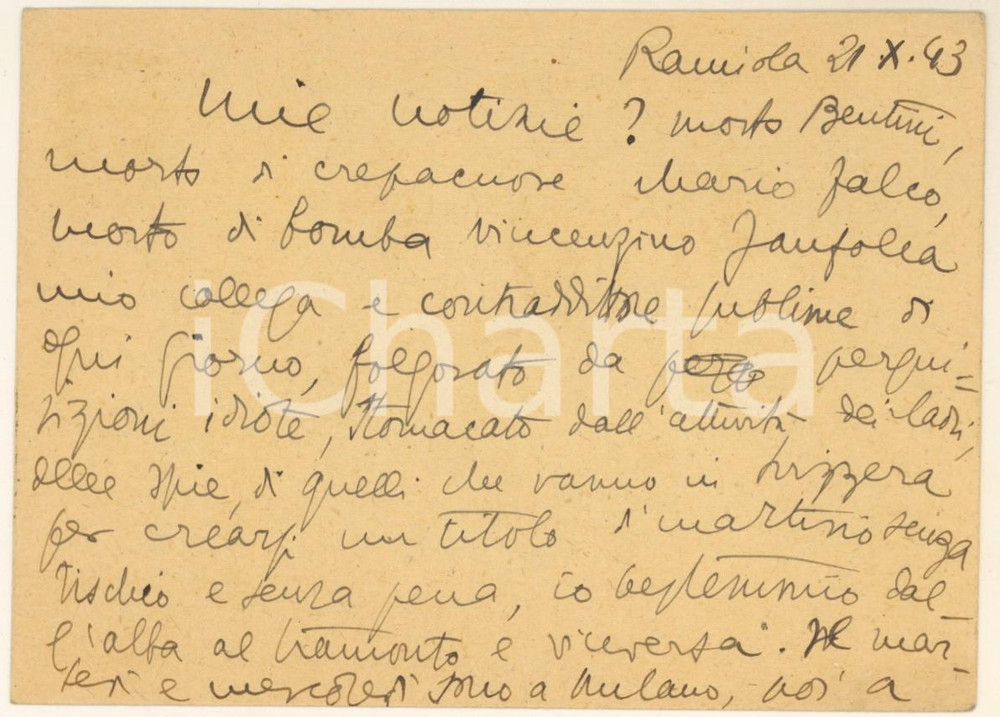 Ramiola 21.X.43
Mie notizie? morto Bentini,
morto di crepacuore Mario Falco,
morto di bomba Vincenzino Janfolla
mio collega e contraddittore sublime di
ogni giorno, folgorato da perqui=
sizioni idiote, stomacato dall'attività dei ladri,
delle spie, di quelli che vanno in Svizzera
per crearsi un titolo di martirio senza
rischio e senza pena, io bestemmio dal-
l'alba al tramonto e viceversa. Il mar-
tedì e mercoledì sono a Milano, poi a
iCharta